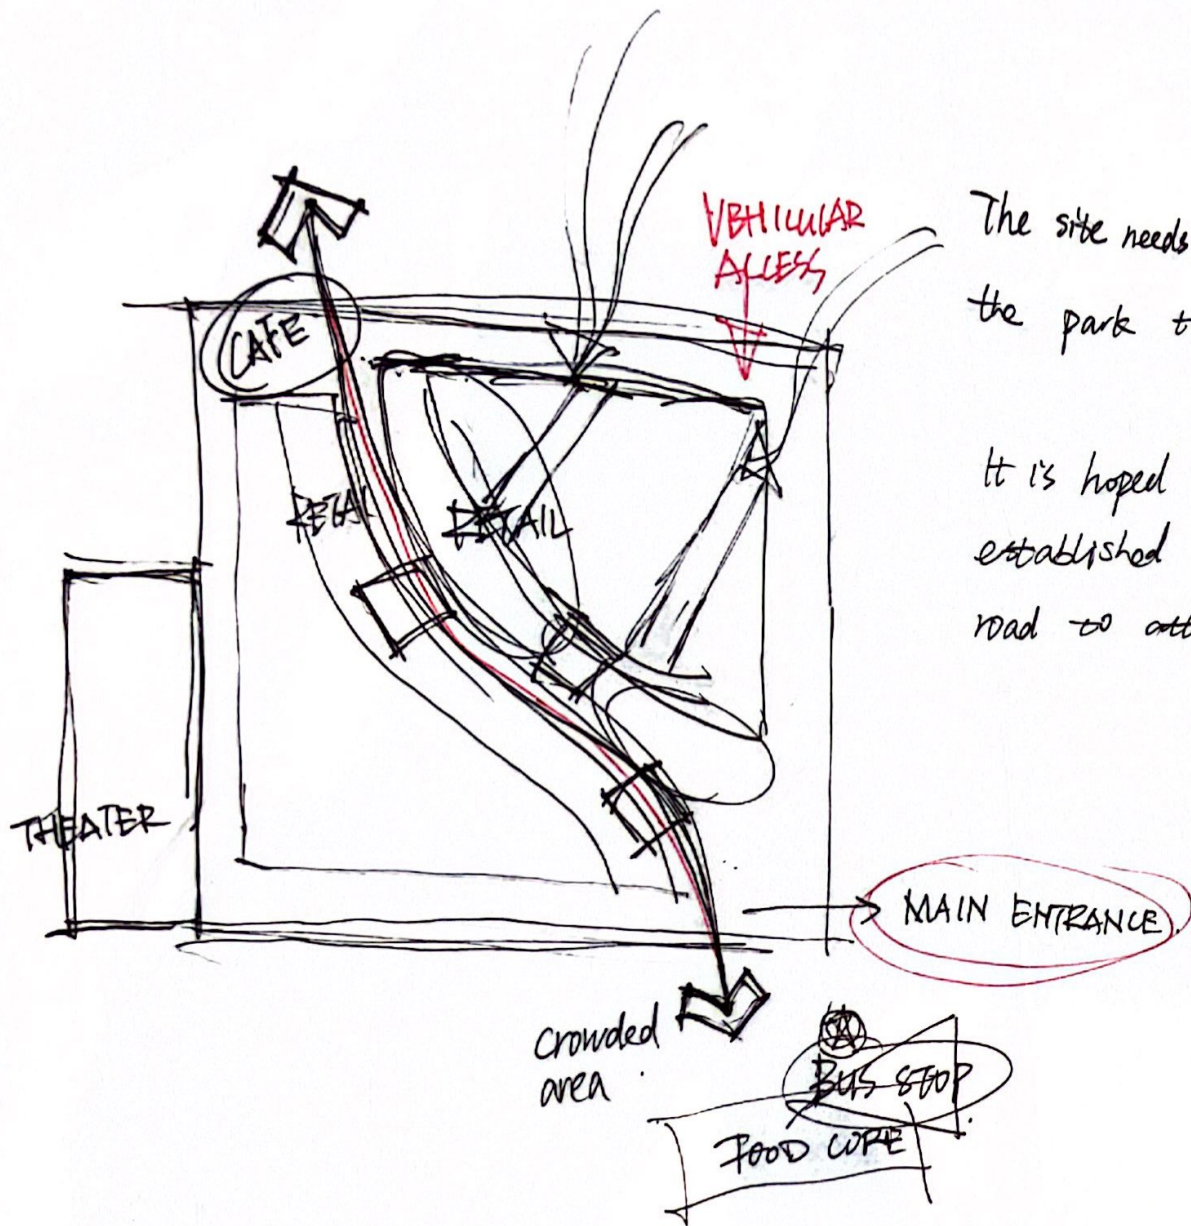 VBHICULAR
ACCESS
The site needs
the park t
CAFE
It is hoped
established
road to att
RETAI
RETAIL
THEATER
MAIN ENTRANCE.
crowded
area
BUS STOP
FOOD CORE